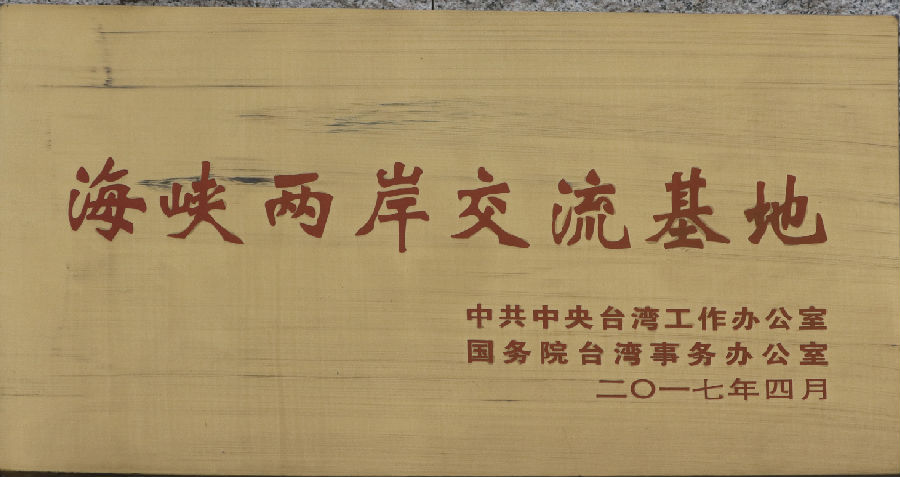 海峡两岸交流基地
中共中央台湾工作办公室
国务院台湾事务办公室
二〇一七年四月